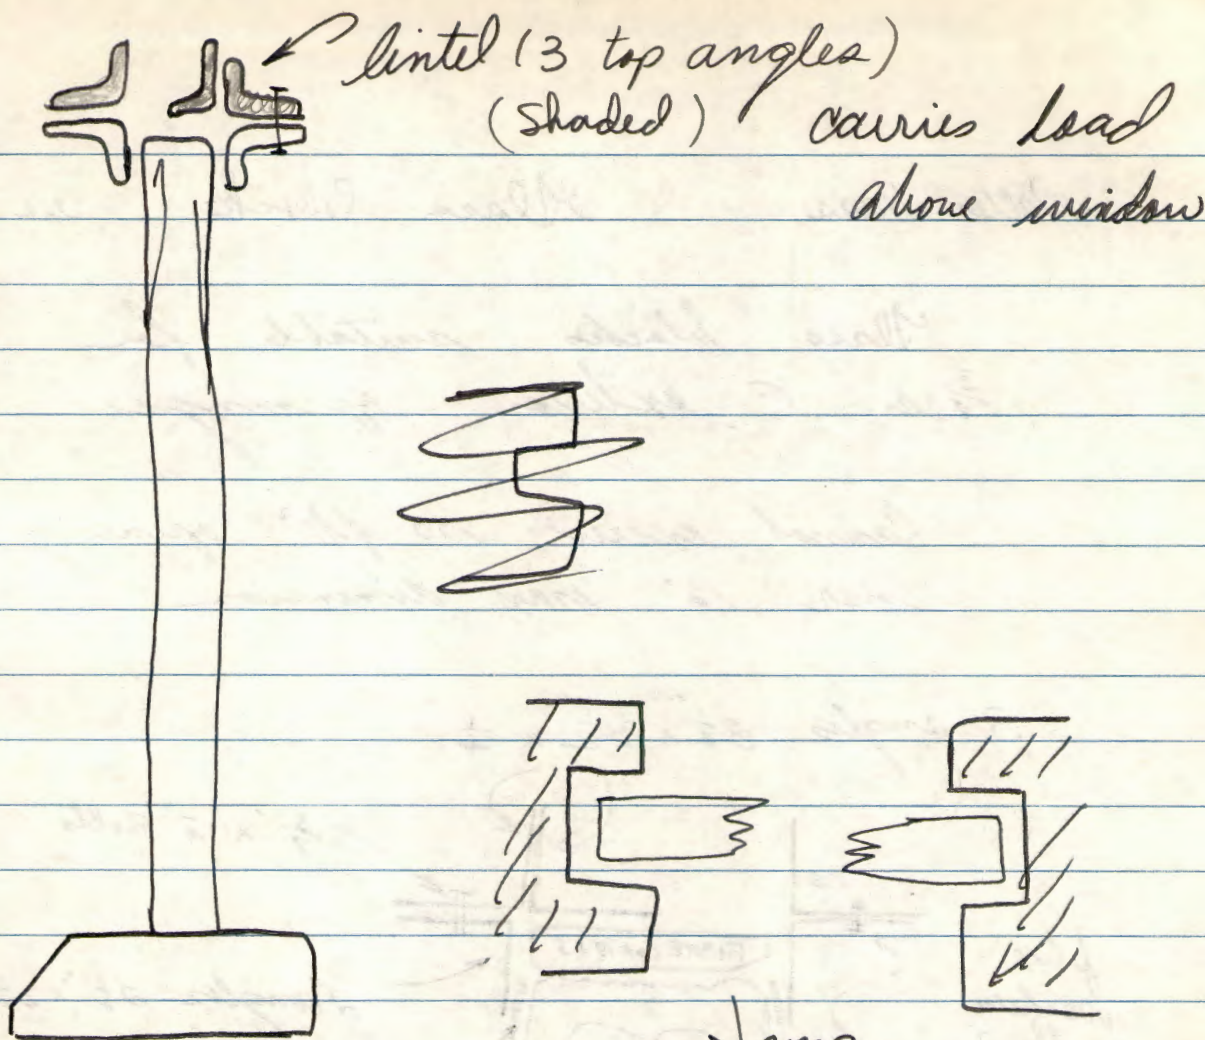 lintel (3 top angles)
(shaded) carries load
above window